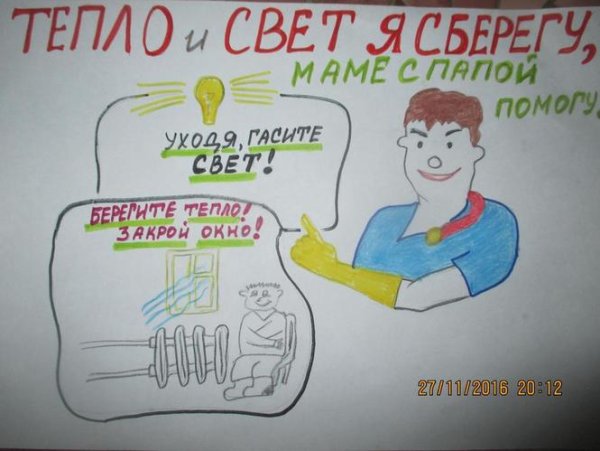 ТЕПЛО и СВЕТ Я СБЕРЕГУ,
МАМЕ С ПАПОЙ
ПОМОГУ.
УХОДЯ, ГАСИТЕ
СВЕТ!
БЕРЕГИТЕ ТЕПЛО!
ЗАКРОЙ ОКНО!
27/11/2016 20:12